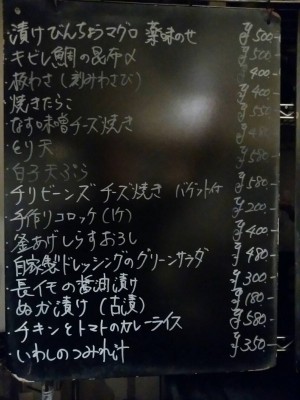 漬けびんちょうマグロ 薬味のせ ¥500-
・キビレ鯛の昆布〆 ¥500-
・板わさ（刻みわさび） ¥400-
・焼きたらこ ¥400-
・なす味噌チーズ焼き ¥550-
・とり天
白子天ぷら ¥580-
・チリビーンズ チーズ焼き バゲット付 ¥580-
・手作りコロッケ（1ケ） ¥200-
・釜あげしらすおろし ¥400-
・自家製ドレッシングのグリーンサラダ ¥480-
・長イモの醤油漬け ¥300-
・ぬか漬け（古漬） ¥180-
・チキンとトマトのカレーライス ¥580-
・いわしのつみれ汁 ¥350-